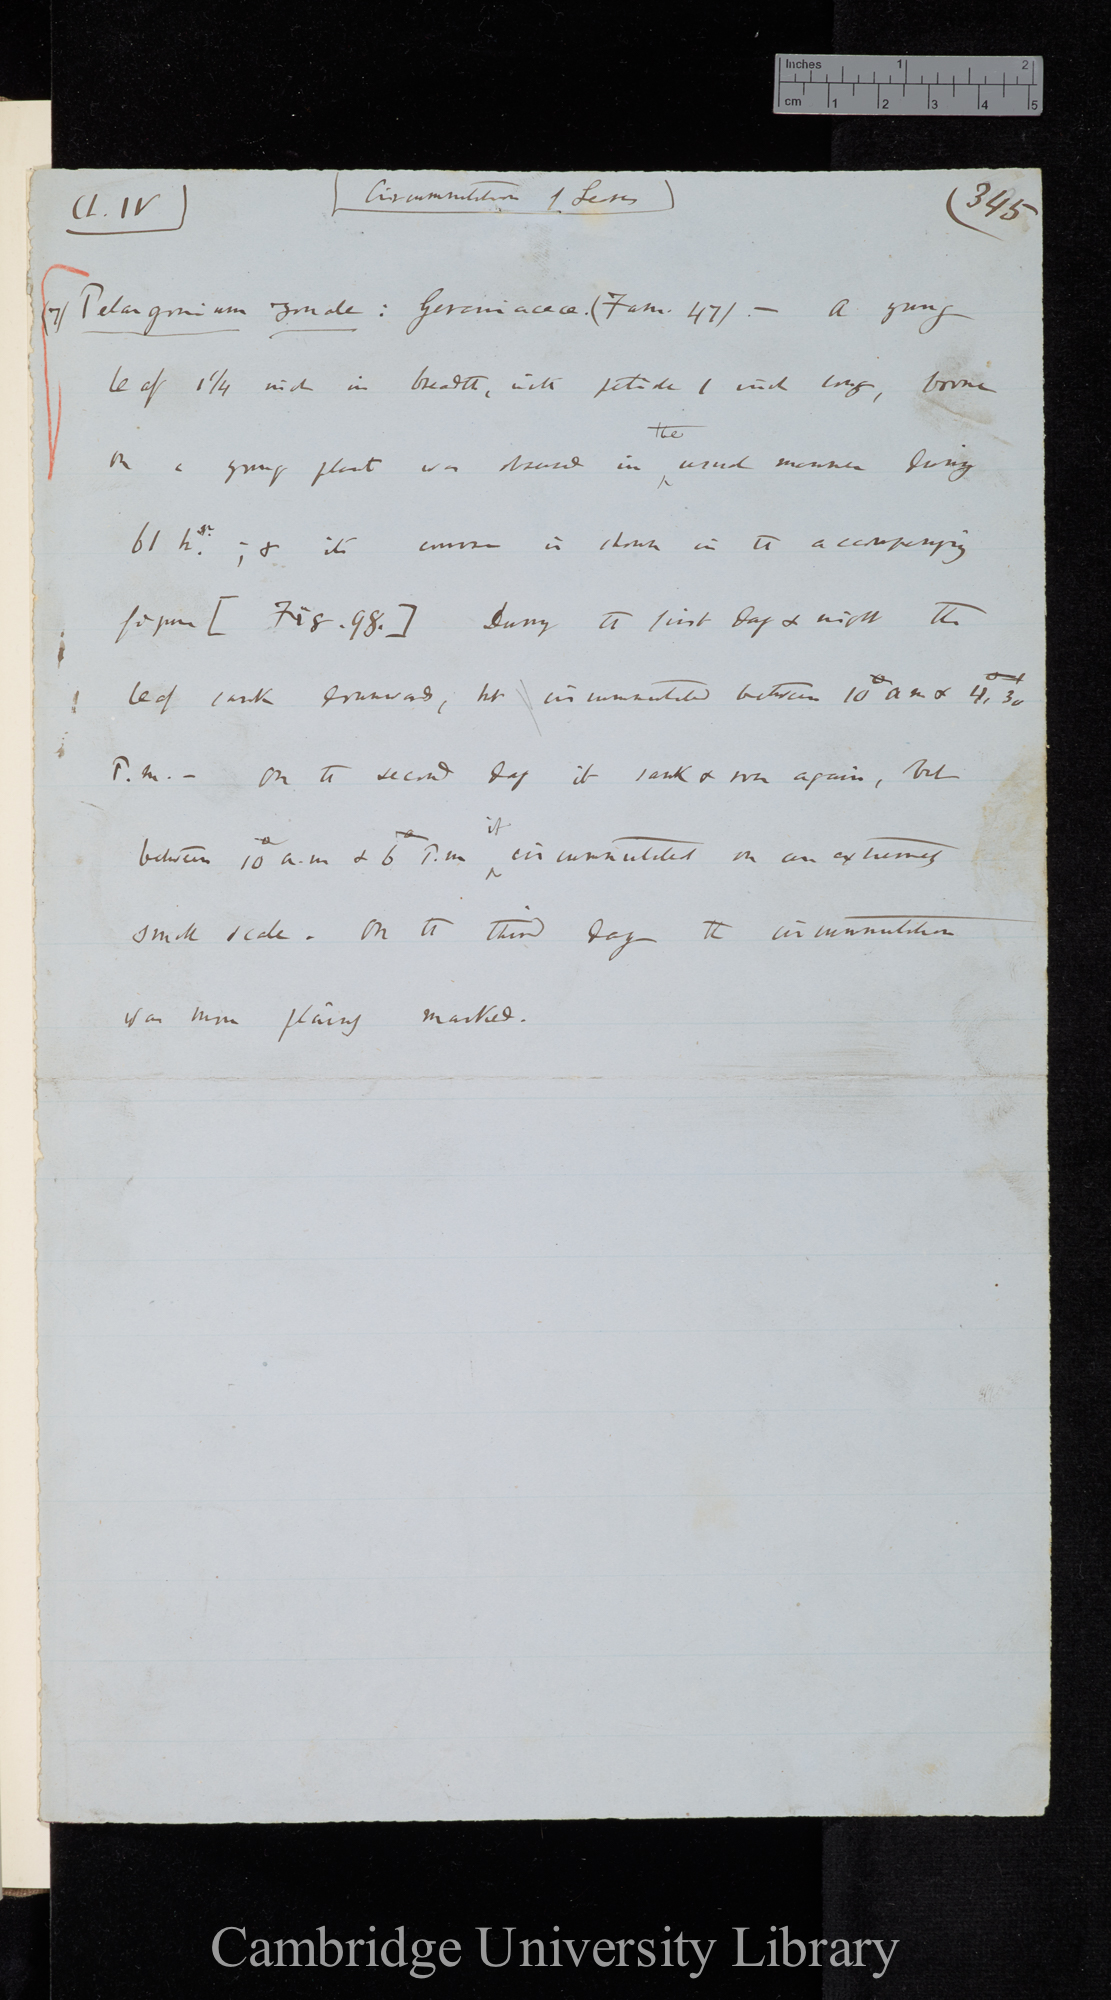 Inches 1 2
cm 1 2 3 4 5
Ch. IV
Circumnutation of Leaves
(345
(7) Pelargonium zonale : Geraniaceæ. (Fam. 47). — A young
leaf 1 1/4 inch in breadth, with petiole 1 inch long, borne
on a young plant was observed in the usual manner during
61 hrs. ; & its course is shown in the accompanying
figure [Fig. 98.] During the first day & night the
leaf sank downwards, but circumnutated between 10° a m & 4° 30
P.m. — On the second day it sank & rose again, but
between 10° a.m & 6° P.m it circumnutated on an extremely
small scale. On the third day the circumnutation
was more plainly marked.
Cambridge University Library